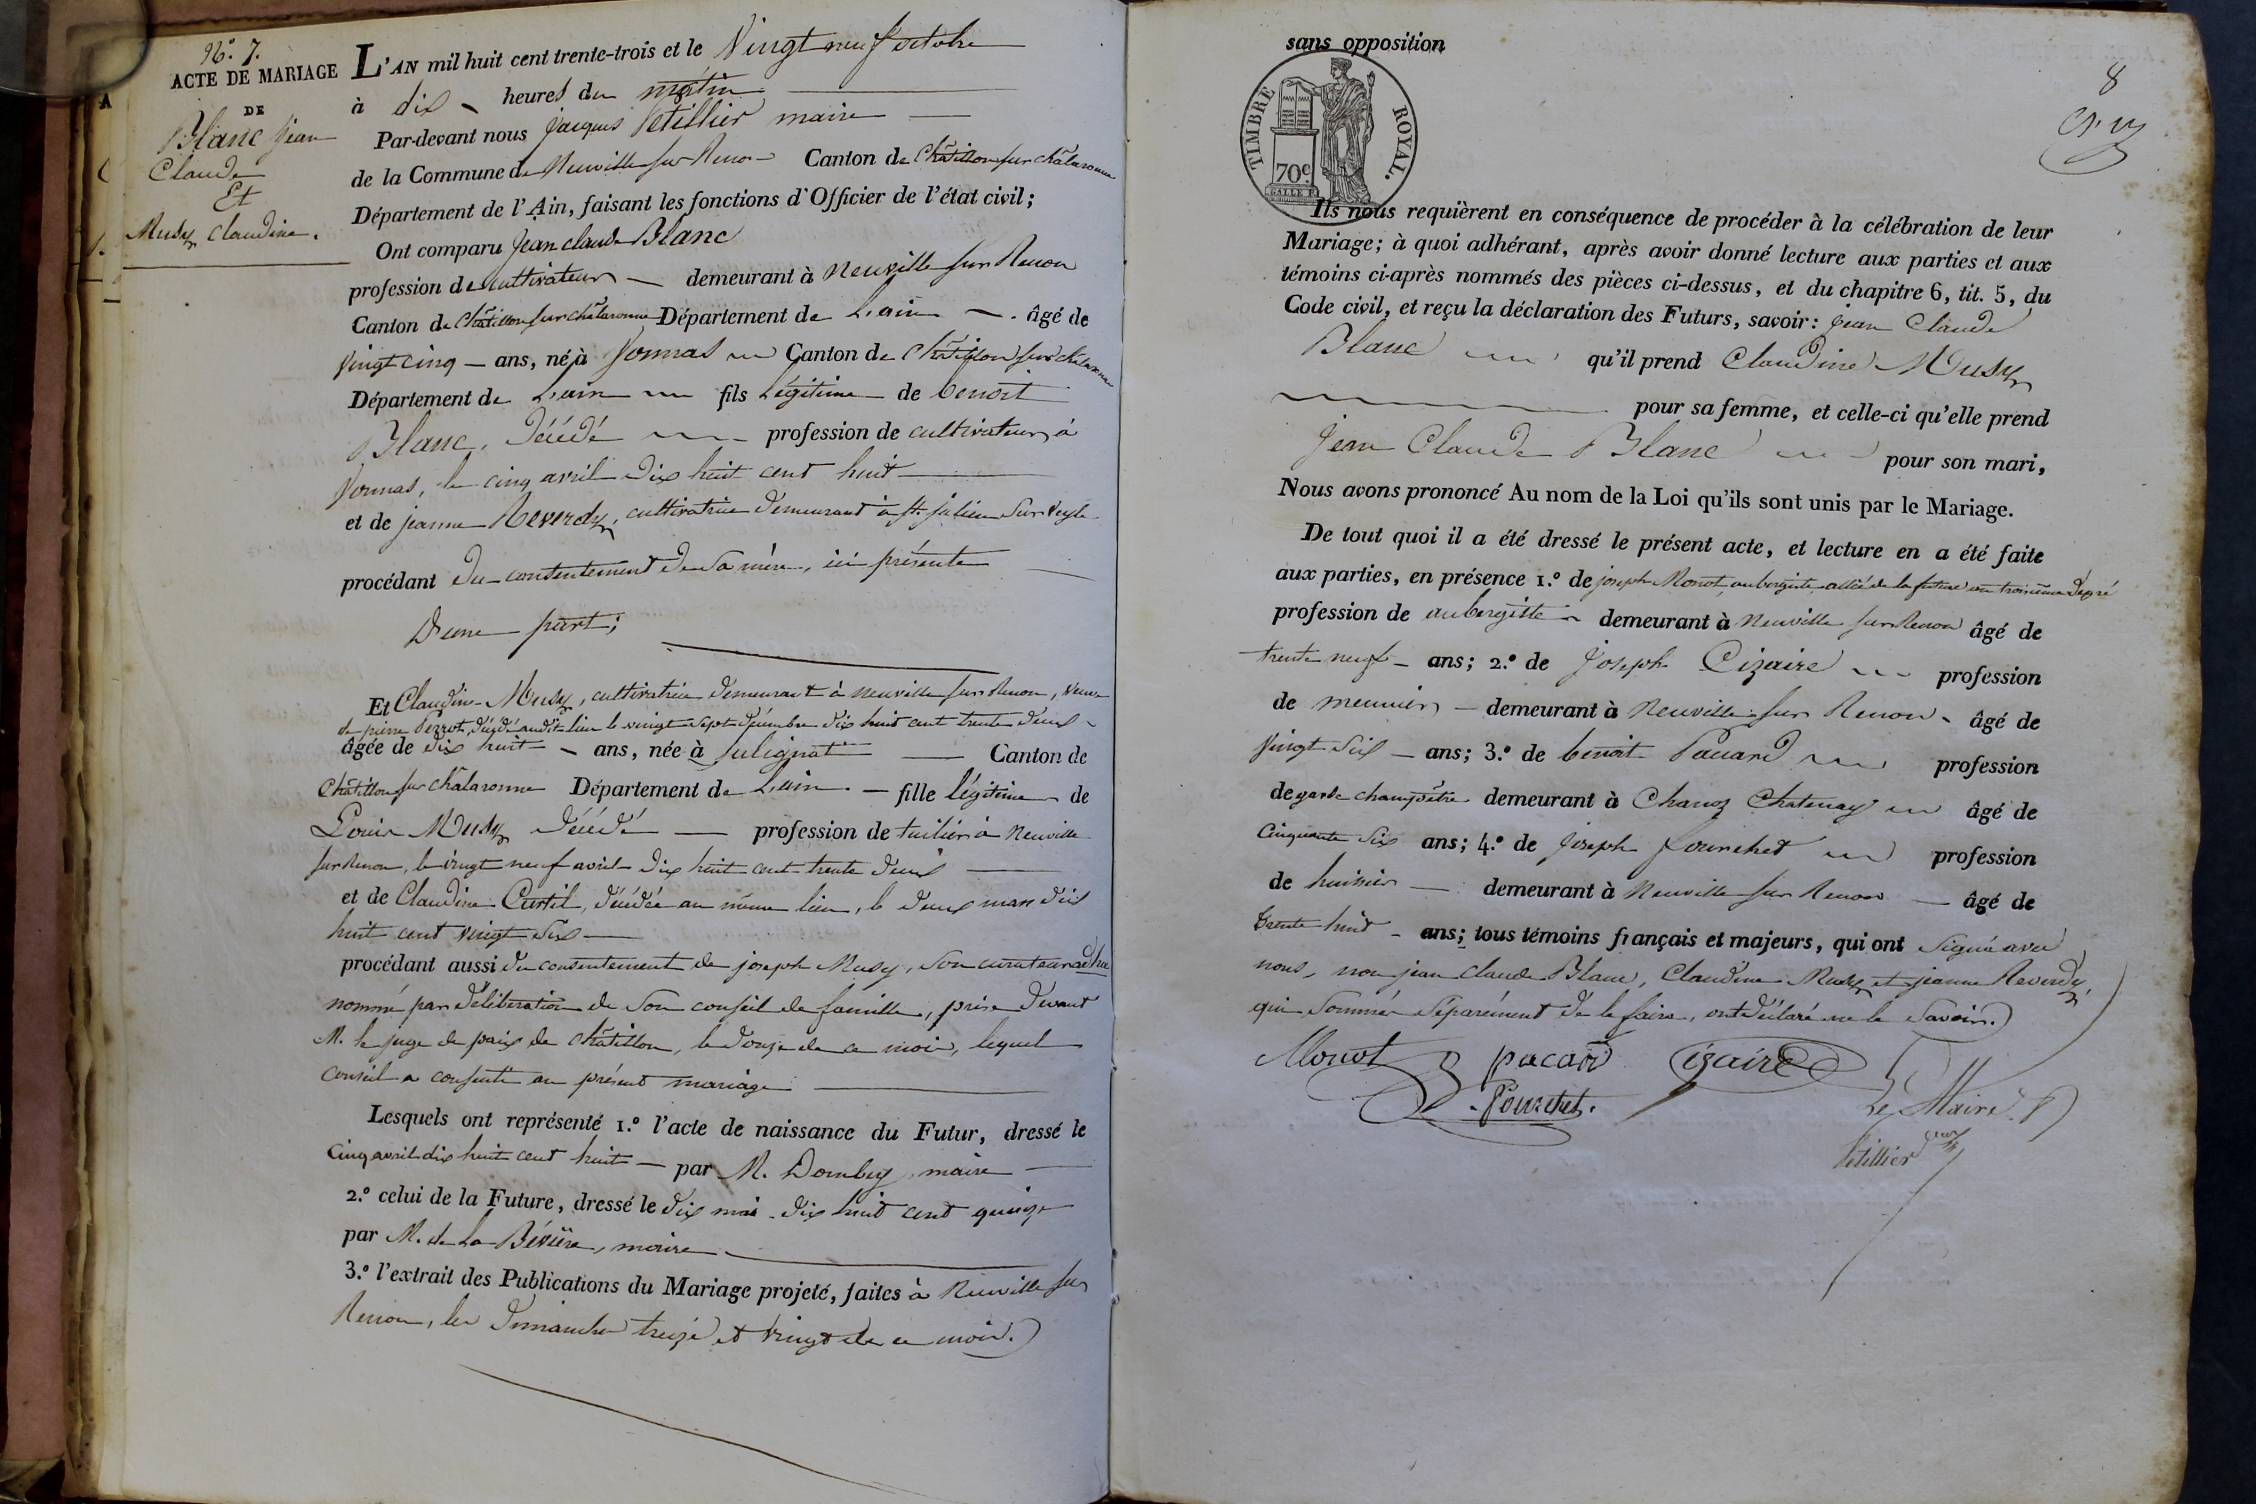 N.° 7.
ACTE DE MARIAGE
DE
Blanc Jean
Claude
Et
Musy Claudine.
L'AN mil huit cent trente-trois et le Vingt neuf octobre
à dix heures du matin
Par-devant nous Jacques Petillier maire
de la Commune de Neuville sur Renon Canton de Châtillon sur chalaronne
Département de l'Ain, faisant les fonctions d'Officier de l'état civil;
Ont comparu Jean claude Blanc
profession de cultivateur demeurant à Neuville sur Renon
Canton de Châtillon sur chalaronne Département de L'ain âgé de
Vingt cinq ans, né à Vonnas Canton de Châtillon sur chalaronne
Département de L'ain fils légitime de benoit
Blanc, décédé profession de cultivateur à
Vonnas, le cinq avril dix huit cent huit
et de jeanne Reverdy, cultivatrice demeurant à St. julien Sur Veyle
procédant du consentement de Sa mère, ici présente
D'une part;
Et Claudine Musy, cultivatrice demeurant à Neuville sur Renon, veuve
de pierre Perrot, décédé audit lieu le vingt sept décembre dix huit cent trente deux
âgée de dix huit ans, née à Sulignat Canton de
Châtillon sur chalaronne Département de L'ain fille légitime de
Louis Musy décédé profession de tuilier à Neuville
sur Renon, le vingt neuf avril dix huit cent trente deux
et de Claudine Curtil, décédée au même lieu, le deux mars dix
huit cent vingt Six
procédant aussi du consentement de joseph Musy, Son curateur ad hoc
nommé par délibération de Son conseil de famille, prise devant
M. le juge de paix de Châtillon, le douze de ce mois, lequel
conseil a consenti au présent mariage
Lesquels ont représenté 1.° l'acte de naissance du Futur, dressé le
Cinq avril dix huit cent huit par M. Dombey, maire
2.° celui de la Future, dressé le dix mai dix huit cent quinze
par M. de La Bévière, maire
3.° l'extrait des Publications du Mariage projeté, faites à Neuville sur
Renon, les dimanches treize et vingt de ce mois.
sans opposition
8
TIMBRE ROYAL.
70c.
GALLE F.
Ils nous requièrent en conséquence de procéder à la célébration de leur
Mariage; à quoi adhérant, après avoir donné lecture aux parties et aux
témoins ci-après nommés des pièces ci-dessus, et du chapitre 6, tit. 5, du
Code civil, et reçu la déclaration des Futurs, savoir: Jean Claude
Blanc qu'il prend Claudine Musy
pour sa femme, et celle-ci qu'elle prend
Jean Claude Blanc pour son mari,
Nous avons prononcé Au nom de la Loi qu'ils sont unis par le Mariage.
De tout quoi il a été dressé le présent acte, et lecture en a été faite
aux parties, en présence 1.° de joseph Monot, aubergiste, allié de la future au troisième degré
profession de aubergiste demeurant à Neuville sur Renon âgé de
trente neuf ans; 2.° de Joseph Cizaire profession
de meunier demeurant à Neuville sur Renon âgé de
Vingt Six ans; 3.° de benoit Pacard profession
de garde champêtre demeurant à Chanoz Chatenay âgé de
Cinquante Six ans; 4.° de Joseph fourchet profession
de huissier demeurant à Neuville sur Renon âgé de
trente huit ans; tous témoins français et majeurs, qui ont Signé avec
nous, non jean claude Blanc, Claudine Musy et jeanne Reverdy,
qui Sommés Séparément de le faire, ont déclaré ne le Savoir.
Monot pacard Cizaire
Fourchet.
Le Maire
Petillier